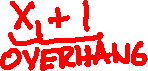 X₁ + 1
OVERHANG